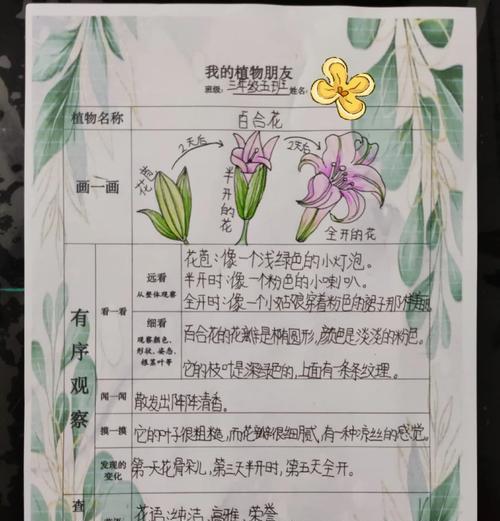 我的植物朋友
班级:三年级五班 姓名:
植物名称 百合花
画一画
花苞
2天后
半开的花
2天后
全开的花
有序观察
看一看
远看
从整体观察
花苞:像一个浅绿色的小灯泡。
半开时:像一个粉色的小喇叭。
全开时:像一个小姑娘穿着粉色的裙子那样美丽。
细看
观察颜色、
形状、姿态、
根茎叶等
百合花的花瓣是椭圆形,颜色是淡淡的粉色。
它的枝叶是深绿色的,上面有一条条纹理。
闻一闻 散发出阵阵清香。
摸一摸 它的叶子很粗糙,而花瓣很细腻,有一种凉丝的感觉。
发现的
变化
第一天花骨朵儿,第三天半开时,第五天全开。
查
花语:纯洁、高雅、荣誉